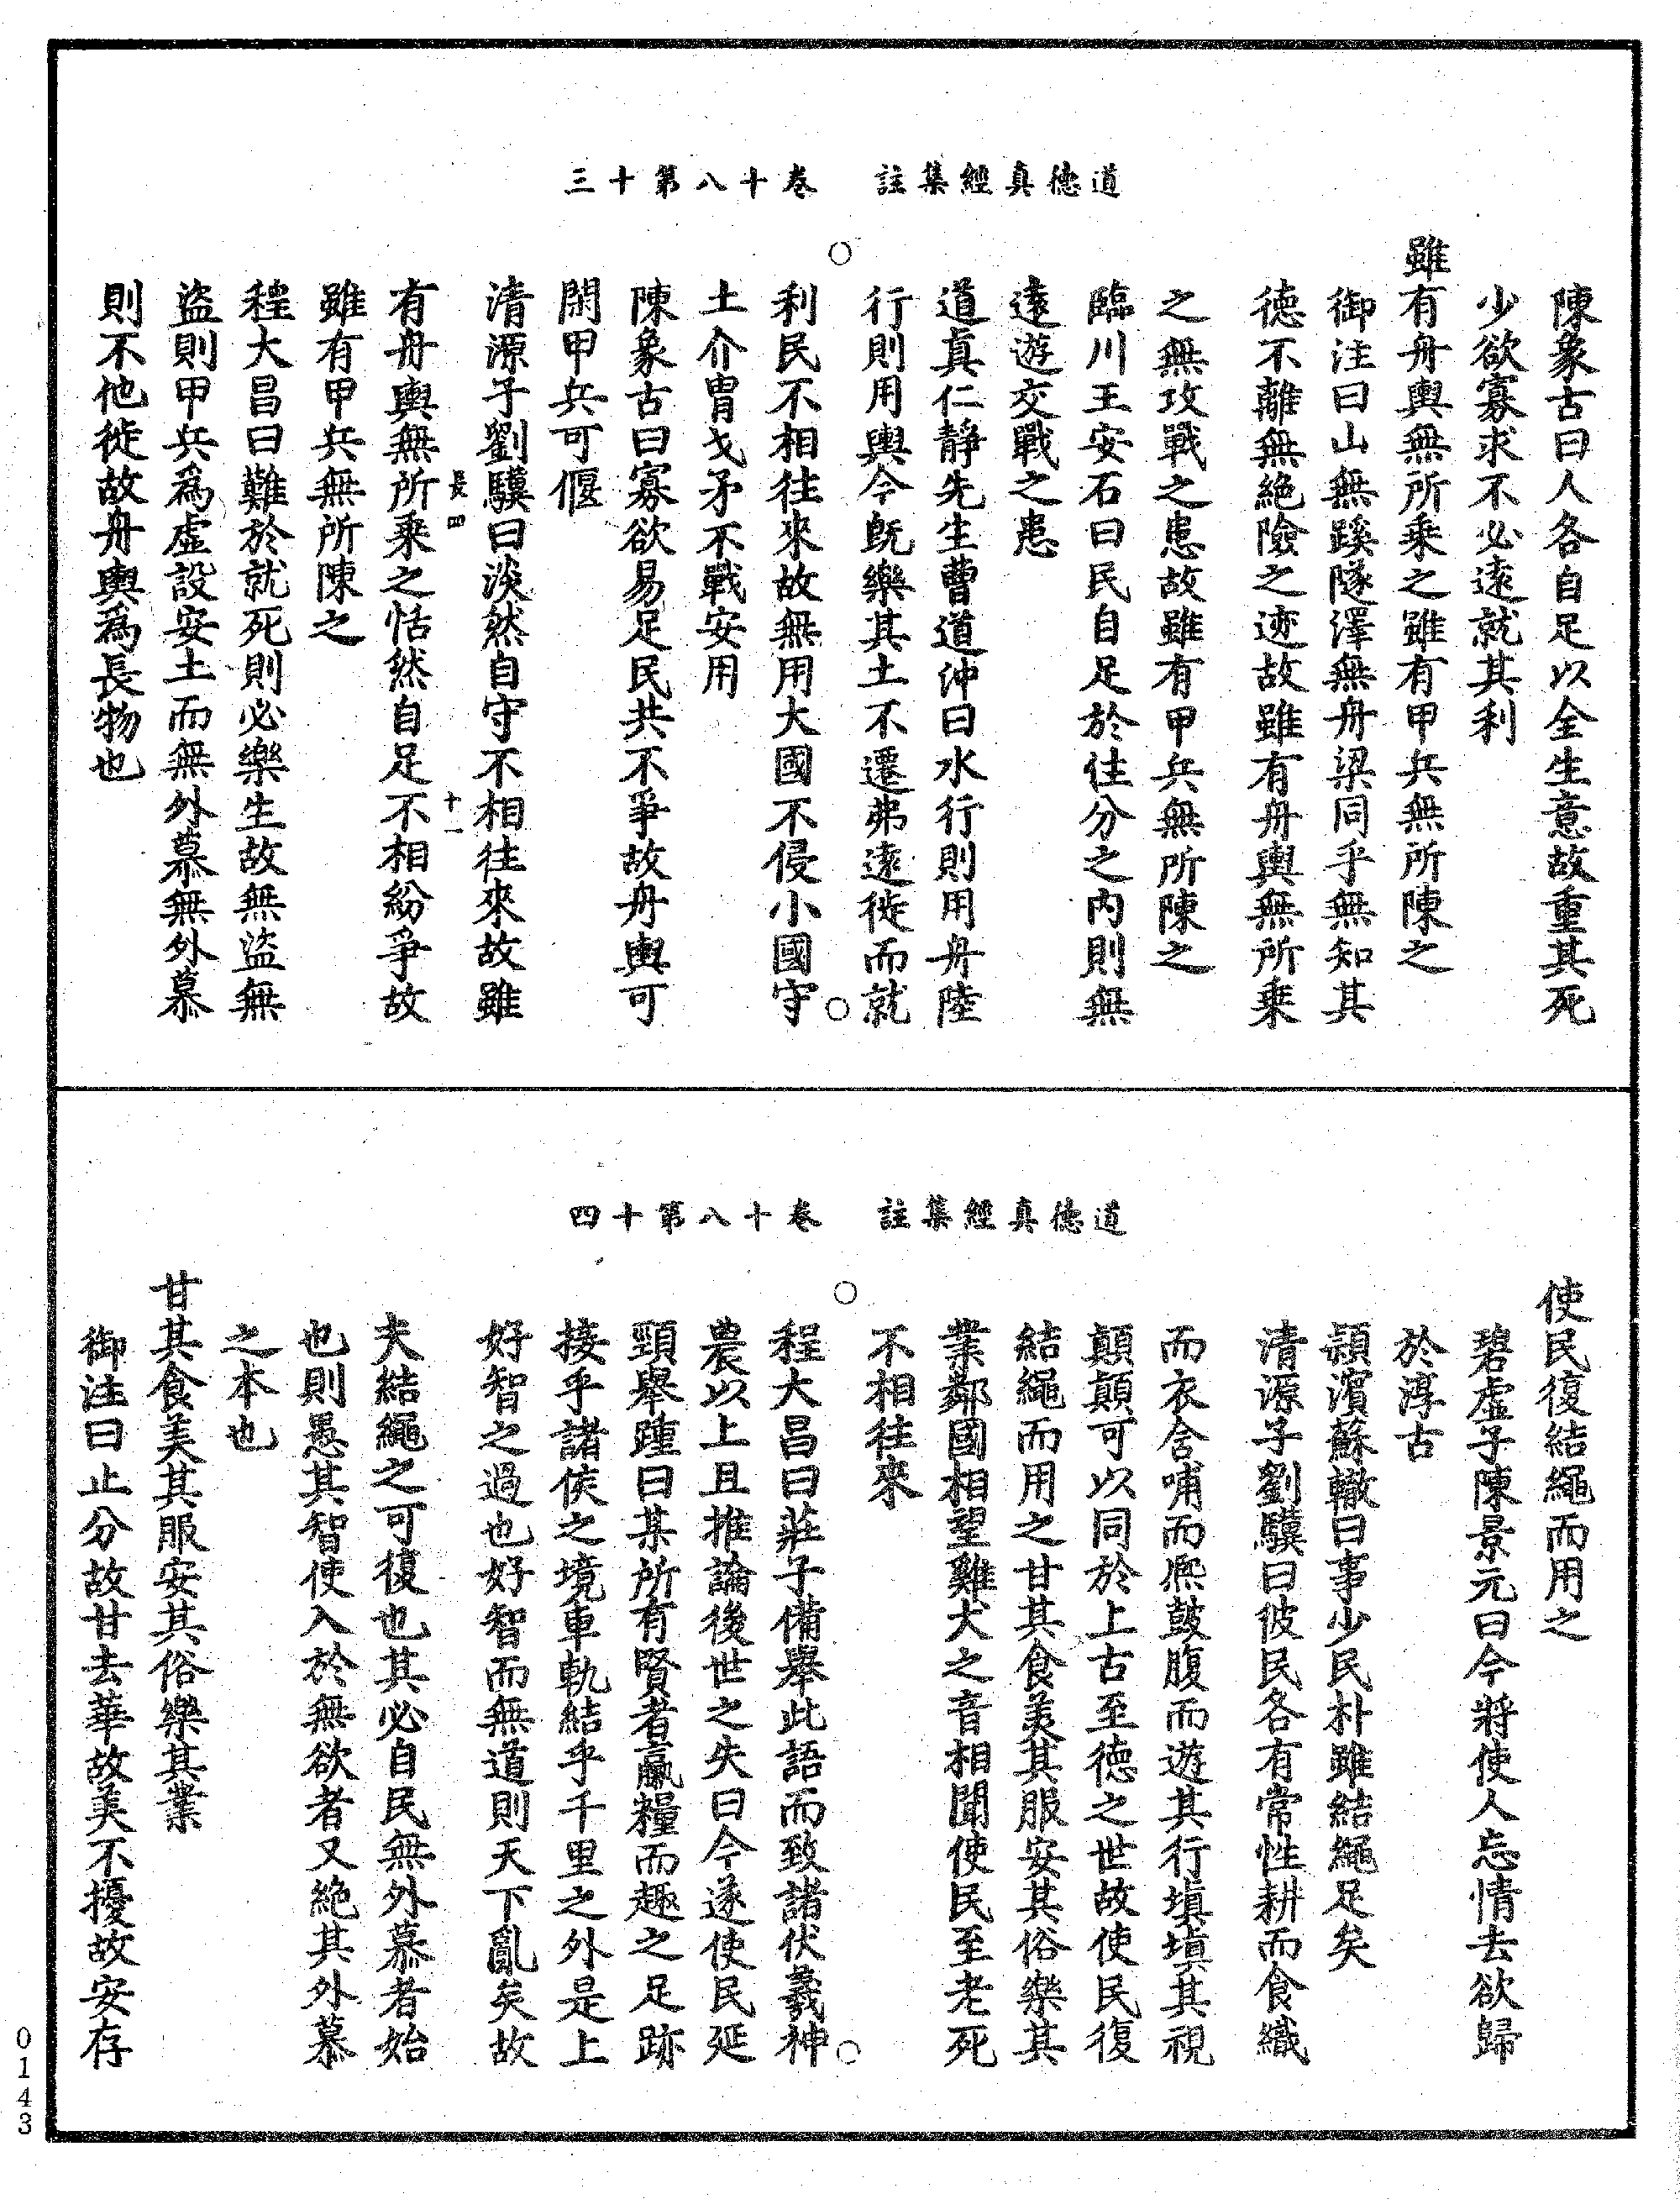 道德真經集註　卷十八第十三
陳象古曰人各自足以全生意故重其死
少欲寡求不必遠就其利
雖有舟輿無所乘之雖有甲兵無所陳之
御注曰山無蹊隧澤無舟梁同乎無知其
德不離無絕險之迹故雖有舟輿無所乘
之無攻戰之患故雖有甲兵無所陳之
臨川王安石曰民自足於住分之内則無
遠遊交戰之患
道真仁靜先生曹道沖曰水行則用舟陸
行則用輿今旣樂其土不遷弗遠徙而就
利民不相往來故無用大國不侵小國守
土介冑戈矛不戰安用
陳象古曰寡欲易足民共不爭故舟輿可
閑甲兵可偃
清源子劉驥曰淡然自守不相往來故雖
長四　十一
有舟輿無所乘之恬然自足不相紛爭故
雖有甲兵無所陳之
程大昌曰難於就死則必樂生故無盜無
盜則甲兵爲虛設安土而無外慕無外慕
則不他徙故舟輿爲長物也
道德真經集註　卷十八第十四
使民復結繩而用之
碧虛子陳景元曰今將使人忘情去欲歸
於淳古
頴濱蘇轍曰事少民朴雖結繩足矣
清源子劉驥曰彼民各有常性耕而食織
而衣含哺而熈鼓腹而遊其行塡塡其視
顛顛可以同於上古至德之世故使民復
結繩而用之甘其食美其服安其俗樂其
業鄰國相望雞犬之音相聞使民至老死
不相往來
程大昌曰莊子備舉此語而致諸伏羲神
農以上且推論後世之失曰今遂使民延
頸舉踵曰某所有賢者贏糧而趣之足跡
接乎諸侯之境車軌結乎千里之外是上
好智之過也好智而無道則天下亂矣故
夫結繩之可復也其必自民無外慕者始
也則愚其智使入於無欲者又絶其外慕
之本也
甘其食美其服安其俗樂其業
御注曰止分故甘去華故美不擾故安存
0143